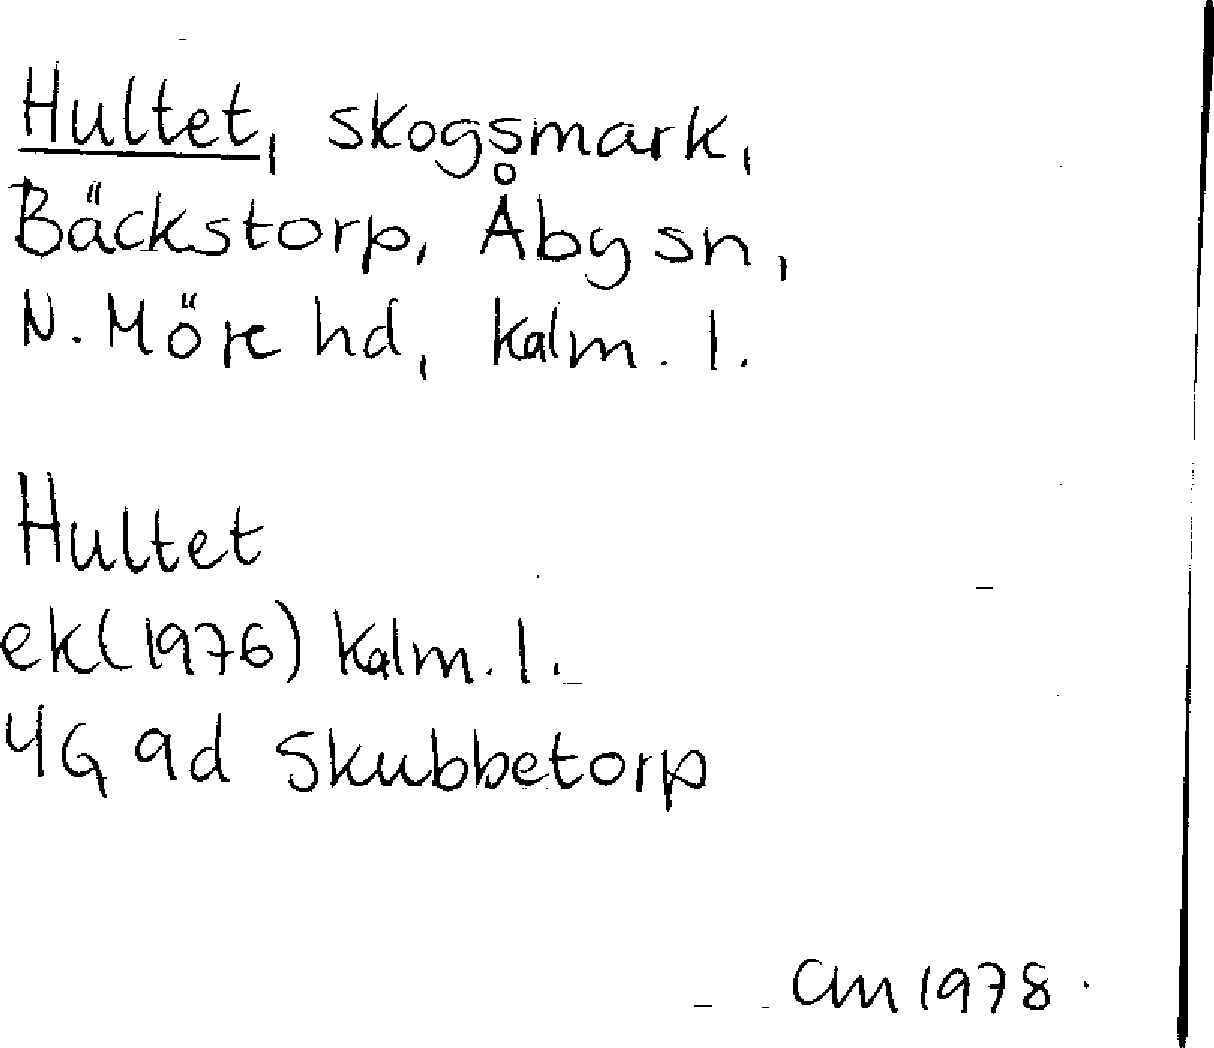 Hultet, skogsmark,
Bäckstorp, Åby sn,
N. Möre hd, Kalm. l.
Hultet
ek (1976) Kalm. l.
4G 9d Skubbetorp
CM 1978.